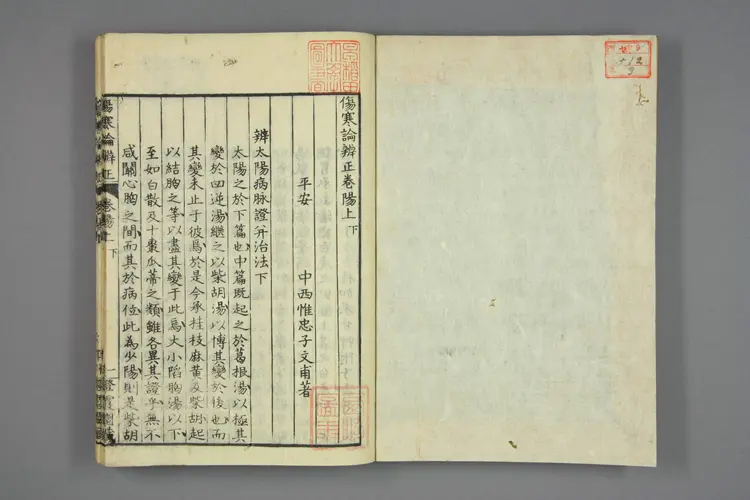 傷寒論辨正卷陽上 下
平安 中西惟忠子文甫著
辨太陽病脉證并治法下
太陽之於下篇也中篇既起之於葛根湯以極其
變於四逆湯繼之以柴胡湯以傳其變於後也而
其變未止于彼爲於是今承桂枝麻黄及柴胡起
以結胸之等以盡其變于此爲大小陷胸湯以下
至如白散及十棗瓜蒂之類雖各異其證乎無不
咸關心胸之間而其於病位此為少陽則是柴胡
傷寒論辨正 卷陽上 下